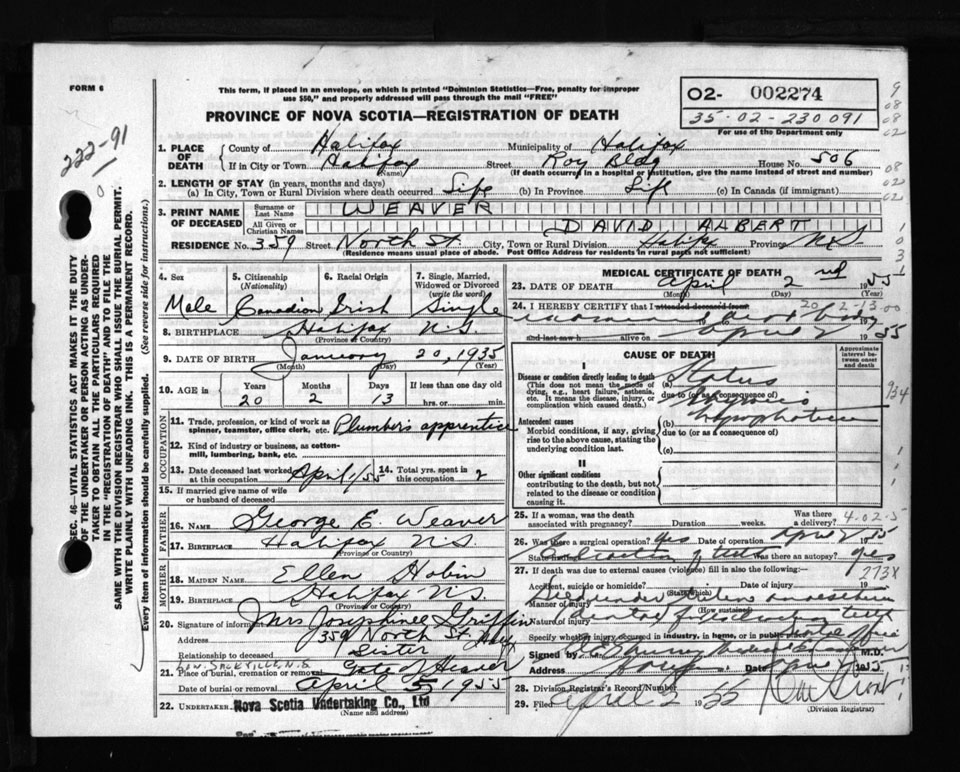 FORM 6
This form, if placed in an envelope, on which is printed "Dominion Statistics—Free, penalty for improper
use $50," and properly addressed will pass through the mail "FREE"
O2- 002274
35-02-230091
For use of the Department only
PROVINCE OF NOVA SCOTIA—REGISTRATION OF DEATH
222-91
1. PLACE OF DEATH
County of Halifax Municipality of Halifax
If in City or Town Halifax Street Roy Bldg House No. 506
(Name) (If death occurred in a hospital or institution, give name instead of street and number)
2. LENGTH OF STAY (in years, months and days)
(a) In City, Town or Rural Division where death occurred Life (b) In Province Life (c) In Canada (if immigrant)
3. PRINT NAME OF DECEASED
Surname or Last Name WEAVER
All Given or Christian Names DAVID ALBERT
RESIDENCE No. 359 Street North St. City, Town or Rural Division Halifax Province N.S.
(Residence means usual place of abode. Post Office Address for residents in rural parts not sufficient)
4. Sex Male
5. Citizenship (Nationality) Canadian
6. Racial Origin Irish
7. Single, Married, Widowed or Divorced (write the word) Single
8. BIRTHPLACE Halifax N.S.
(Province or Country)
9. DATE OF BIRTH January 20, 1935
(Month) (Day) (Year)
10. AGE in Years 20 Months 2 Days 13 If less than one day old hrs. or min.
OCCUPATION
11. Trade, profession, or kind of work as spinner, teamster, office clerk, etc. Plumber's apprentice
12. Kind of industry or business, as cotton-mill, lumbering, bank, etc.
13. Date deceased last worked at this occupation April 1/55 14. Total yrs. spent in this occupation 2
15. If married give name of wife or husband of deceased
FATHER
16. NAME George E. Weaver
17. BIRTHPLACE Halifax N.S.
(Province or Country)
MOTHER
18. MAIDEN NAME Ellen Hobin
19. BIRTHPLACE Halifax N.S.
(Province or Country)
20. Signature of informant Mrs Josephine Griffin
Address 359 North St Hfx
Relationship to deceased Sister
LOW. SACKVILLE, N.S.
21. Place of burial, cremation or removal Gate of Heaven
Date of burial or removal April 5, 1955
22. UNDERTAKER Nova Scotia Undertaking Co., Ltd
(Name and address)
MEDICAL CERTIFICATE OF DEATH
23. DATE OF DEATH April 2nd 1955
(Month) (Day) (Year)
20 2-13-00
24. I HEREBY CERTIFY that I attended deceased from
and last saw h alive on April 2 1955
CAUSE OF DEATH
Approximate interval between onset and death
I
Disease or condition directly leading to death (a) Status
(This does not mean the mode of dying, e.g., heart failure, asthenia, etc. It means the disease, injury, or complication which caused death.)
due to (or as consequence of)
Antecedent causes (b)
Morbid conditions, if any, giving rise to the above cause, stating the underlying condition last.
due to (or as consequence of)
(c)
934
II
Other significant conditions
contributing to the death, but not related to the disease or condition causing it.
25. If a woman, was the death associated with pregnancy? Duration weeks. Was there a delivery?
4-02-5
26. Was there a surgical operation? yes Date of operation April 2/55
State findings Extraction of teeth Was there an autopsy? yes
27. If death was due to external causes (violence) fill in also the following:—
273X
Accident, suicide or homicide? Date of injury 19
(State which)
Manner of injury
(How sustained)
Nature of injury
Specify whether injury occurred in industry, in home, or in public place
Signed by M.D.
Address Date
28. Division Registrar's Record Number
29. Filed April 2 1955
(Division Registrar)
SEC. 46—VITAL STATISTICS ACT MAKES IT THE DUTY
OF THE UNDERTAKER OR PERSON ACTING AS UNDER-
TAKER TO OBTAIN ALL THE PARTICULARS REQUIRED
IN THE "REGISTRATION OF DEATH" AND TO FILE THE
SAME WITH THE DIVISION REGISTRAR WHO SHALL ISSUE THE BURIAL PERMIT.
WRITE PLAINLY WITH UNFADING INK. THIS IS A PERMANENT RECORD.
Every item of information should be carefully supplied. (See reverse side for instructions.)